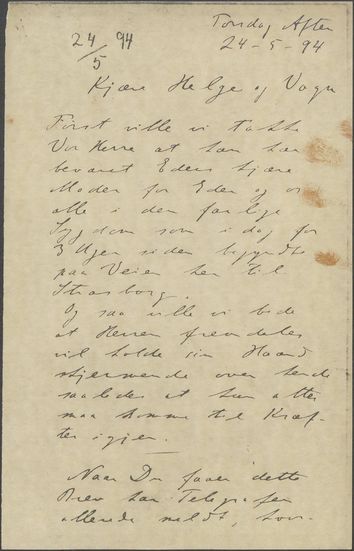 Torsdag Aften
24/5 94
24-5-94
Kjære Helge og Vagn
Først ville vi takke
Vor Herre at han har
bevaret Eders kjære
Moder for Eder og os
alle i den farlige
Sygdom som i dag for
3 Uger siden begyndte
paa Veien her til
Strasborg.
Og saa ville vi bede
at Herren fremdeles
vil holde sin Haand
skjermende over hende
saaledes at hun atter
maa komme til Kræf-
ter igjen.
Naar Du faaer dette
Brev har Telegrafen
allerede meldt, hvor-